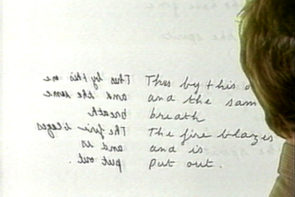 Thus by this one
and the same
breath
The fire blazes
and is
put out.
Thus by this o
and the sam
breath
The fire blazes
and is
put out.